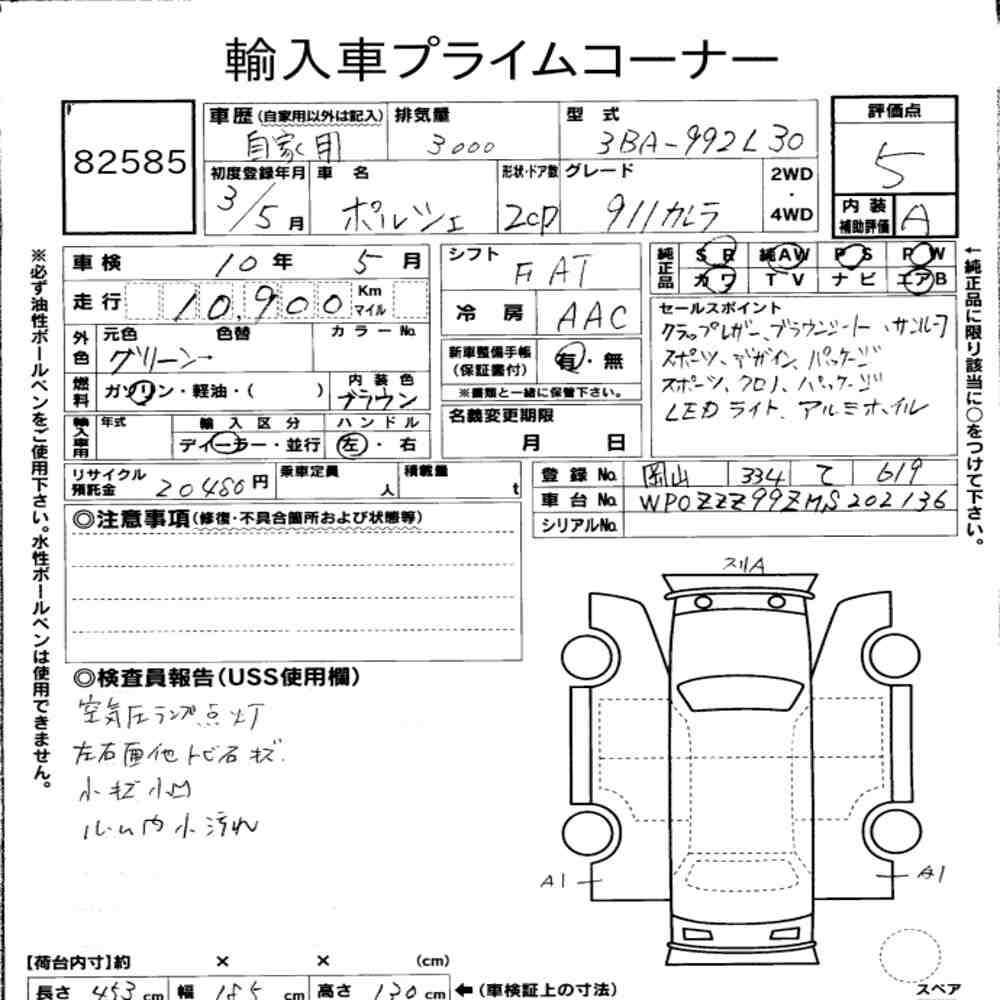 輸入車プライムコーナー
82585
車歴(自家用以外は記入) 自家用
排気量 3000
型式 3BA-992L30
評価点 5
初度登録年月 3/5月
車名 ポルシェ
形状・ドア数 2CP
グレード 911カレラ
2WD・4WD
内装補助評価 A
車検 10年 5月
シフト FAT
純正品 SR 純AW PS PW
カワ TV ナビ エアB
走行 10,900 Km マイル
冷房 AAC
セールスポイント
クラップレザー、ブラウンシート、サンルーフ
スポーツ、デザイン、パッケージ
スポーツ、クロノ、パッケージ
LEDライト、アルミホイル
外色 元色 グリーン 色替 カラーNo.
新車整備手帳(保証書付) 有・無
※書類と一緒に保管下さい。
燃料 ガソリン・軽油・( )
内装色 ブラウン
名義変更期限 月 日
輸入車用 年式 輸入区分 ディーラー・並行 ハンドル 左・右
リサイクル預託金 20480円
乗車定員 人
積載量 t
登録No. 岡山 334 て 619
車台No. WP0ZZZ99ZMS202136
シリアルNo.
◎注意事項(修復・不具合箇所および状態等)
◎検査員報告(USS使用欄)
空気圧ランプ点灯
左右面他トビ石キズ.
小キズ小凹
ルーム内小汚れ
スリA
A1
A1
スペア
【荷台内寸】約 × × (cm)
長さ 453cm 幅 185cm 高さ 130cm ←(車検証上の寸法)
※必ず油性ボールペンをご使用下さい。水性ボールペンは使用できません。
←純正品に限り該当に○をつけて下さい。